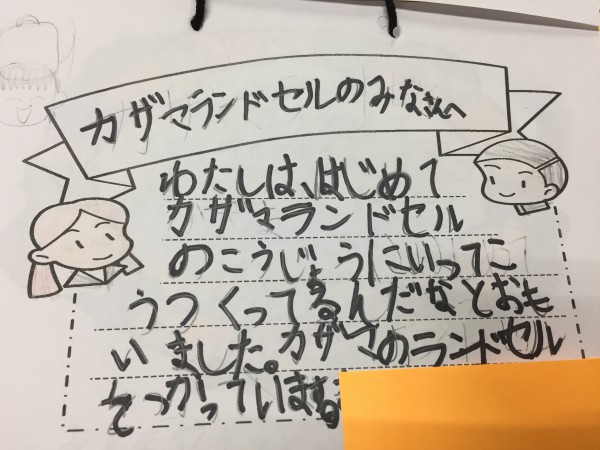 カザマランドセルのみなさんへ
わたしは、はじめて
カザマランドセル
のこうじょうにいってこ
うつくってるんだなとおも
いました。カザマのランドセル
をつかっています。